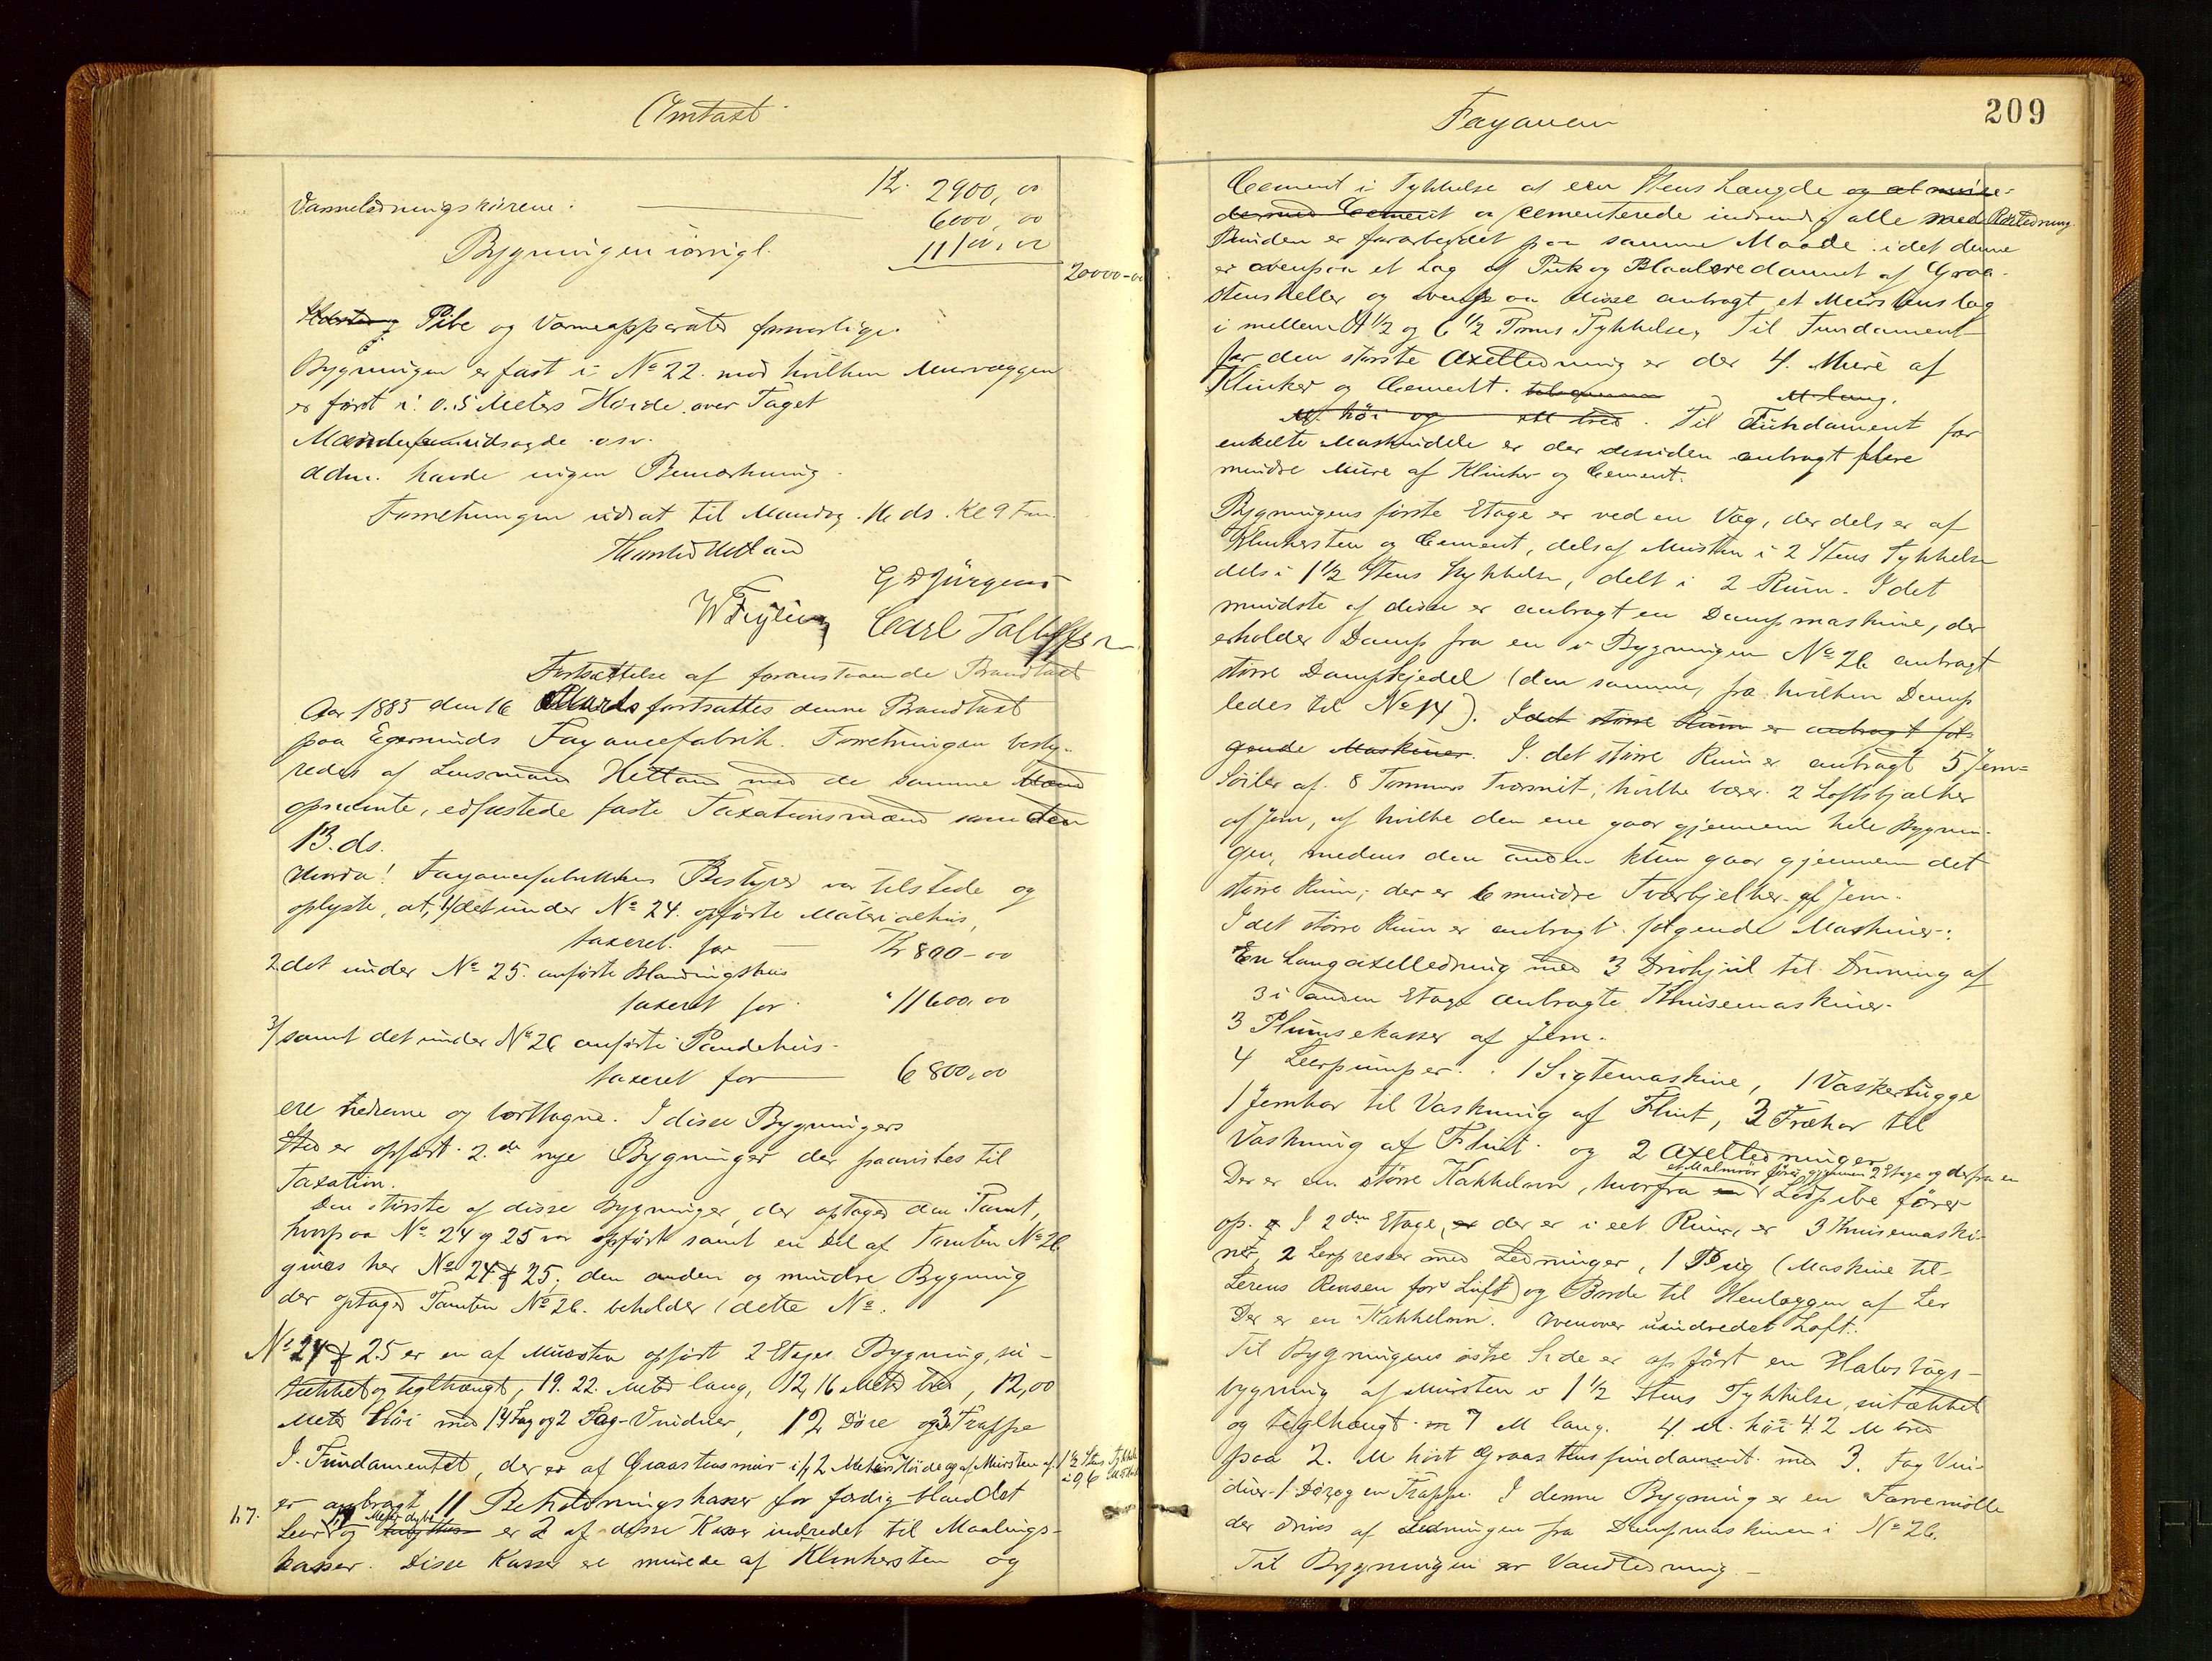 Omtaxt
Kr. 2900,00
Varmeledningsrørene. 6000,00
Bygningen iøvrigt. 11100,00
20000-00
Pibe og Varmeapparater forsvarlige.
Bygningen er fast i No 22. mod hvilken Murvæggen
er ført i 0.5 Meters Høide over Taget
adm. havde ingen Bemærkning.
Forretningen udsat til Mandag 16 ds. Kl 9 Fm.
Hetland
G D Jürgens
W Feyling Carl Tollefsen
Fortsættelse af foranstaaende Brandtaxt
Aar 1885 den 16 Marts fortsattes denne Brandtaxt
paa Egersunds Fayancefabrik. Forretningen besty-
redes af Lensmand Hetland med de samme Mænd
opnævnte, edfæstede faste Taxationsmænd som den
13. ds.
Hvorda! Fayancefabrikkens Bestyrer var tilstede og
oplyste, at, 1/ det under No 24. opførte Materialhus,
taxeret for — Kr 800-00
2 det under No 25. anførte Blandingshus
taxeret for " 11600,00
3/ samt det under No 26 anførte Pandehus
taxeret for — 6800,00
ere nedrevne og borttagne. I disse Bygningers
Sted er opført 2de nye Bygninger der paavistes til
Taxation.
Den største af disse Bygninger, der optager den Tomt,
hvorpaa No 24 og 25 var opført samt en del af Tomten No 26
gives her No 24 & 25; den anden og mindre Bygning
der optager Tomten No 26. beholder dette No.
No 24 & 25 er en af Mursten opført 2 Etages Bygning, su-
tækket og teglhængt, 19.22. Meter lang, 12,16 Meter bred, 12,00
Meter høi med 14 Fag og 2 Fag Vinduer, 12 Døre og 3 Trappe
I Fundamentet, der er af Graastensmur i 1,2 Meters Høide og af Mursten af 1½ Stens Tykkelse
er anbragt 11 Beholdningskasser for færdig blandet
1,7. Meter dybe
Leer og er 2 af disse Kasser indredet til Maalings-
kasser. Disse Kasser er murede af Klinkersten og
Fayancen
209
Cement i Tykkelse af een Stens Længde og at mure-
de med Cement og cementerede indvendig alle med Rørledning.
Bunden er forarbeidet paa samme Maade idet denne
er ovenpaa et Lag af Puk og Blaalere dannet af Graa-
stensheller og ovenpaa disse anbragt et Murstenslag
i mellem 4½ og 6½ Toms Tykkelse. Til Fundament
for den største Axelledning er der 4. Mure af
Klinker og Cement. M lang.
M. høi og M bred. Til Fundament for
enkelte Maskindele er der desuden anbragt flere
mindre Mure af Klinker og Cement.
Bygningens første Etage er ved en Væg, der dels er af
Klinkersten og Cement, dels af Mursten i 2 Stens Tykkelse
dels i 1½ Stens Tykkelse, delt i 2 Rum. I det
mindste af disse er anbragt en Dampmaskine, der
erholder Damp fra en i Bygningen No 26 anbragt
større Dampkjedel (den samme, fra hvilken Damp
ledes til No 14). I det større Rum er anbragt føl-
gende Maskiner. I det større Rum er anbragt 5 Jern-
Søiler af 8 Tommers Tversnit, hvilke bærer 2 Loftsbjælker
af Jern, af hvilke den ene gaar gjennem hele Bygnin-
gen, medens den anden kun gaar gjennem det
større Rum; der er 6 mindre Tverbjelker af Jern.
I det større Rum er anbragt følgende Maskiner:
En Langaxelledning med 3 Drivhjul til Drivning af
3 i anden Etage anbragte Knusemaskiner.
3 Plumsekasser af Jern.
4 Leerpumper. 1 Sigtemaskine, 1 Vaskertugge
1 Jernkar til Vaskning af Flint, 3 Trækar til
Vaskning af Flint og 2 Axelledninger
et Malmrør fører gjennem 2 Etage og derfra en
Der er en større Kakkelovn, hvorfra Lodpibe fører
op. I 2den Etage, der er i eet Rum, er 3 Knusemaski-
ner, 2 Lerpresser med Ledninger, 1 Pug (Maskine til
Lerens Rensen for Luft) og Borde til Henlæggen af Ler
Der er en Kakkelovn. Ovenover uindredet Loft.
Til Bygningens østre Side er opført en Halvtags-
bygning af Mursten i 1½ Stens Tykkelse, sutækket
og teglhængt 7 M lang. 4 M. høi 4.2 M bred
paa 2. M høit Graastensfundament med 3. Fag Vin-
duer 1 Dør og en Trappe. I denne Bygning er en Farvemølle
der drives af Ledningen fra Dampmaskinen i No 26.
Til Bygningen er Vandledning.—